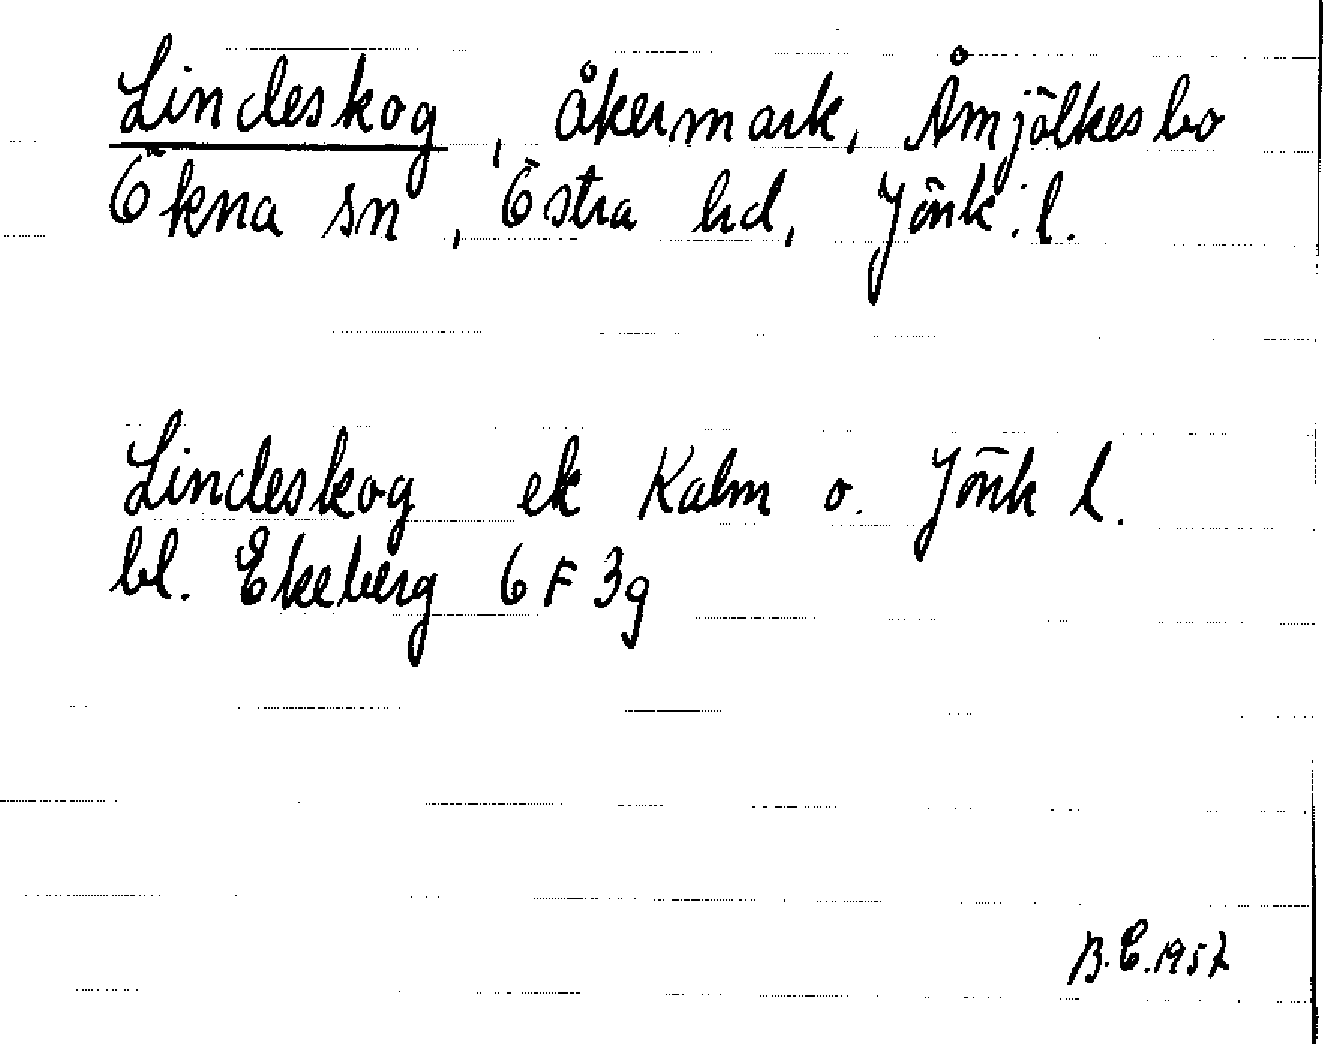 Lindeskog, åkermark, Åmjölkesbo
Ökna sn, Östra hd, Jönk. l.
Lindeskog ek Kalm o. Jönk l.
bl. Ekeberg 6 F 3g
B.E. 1957